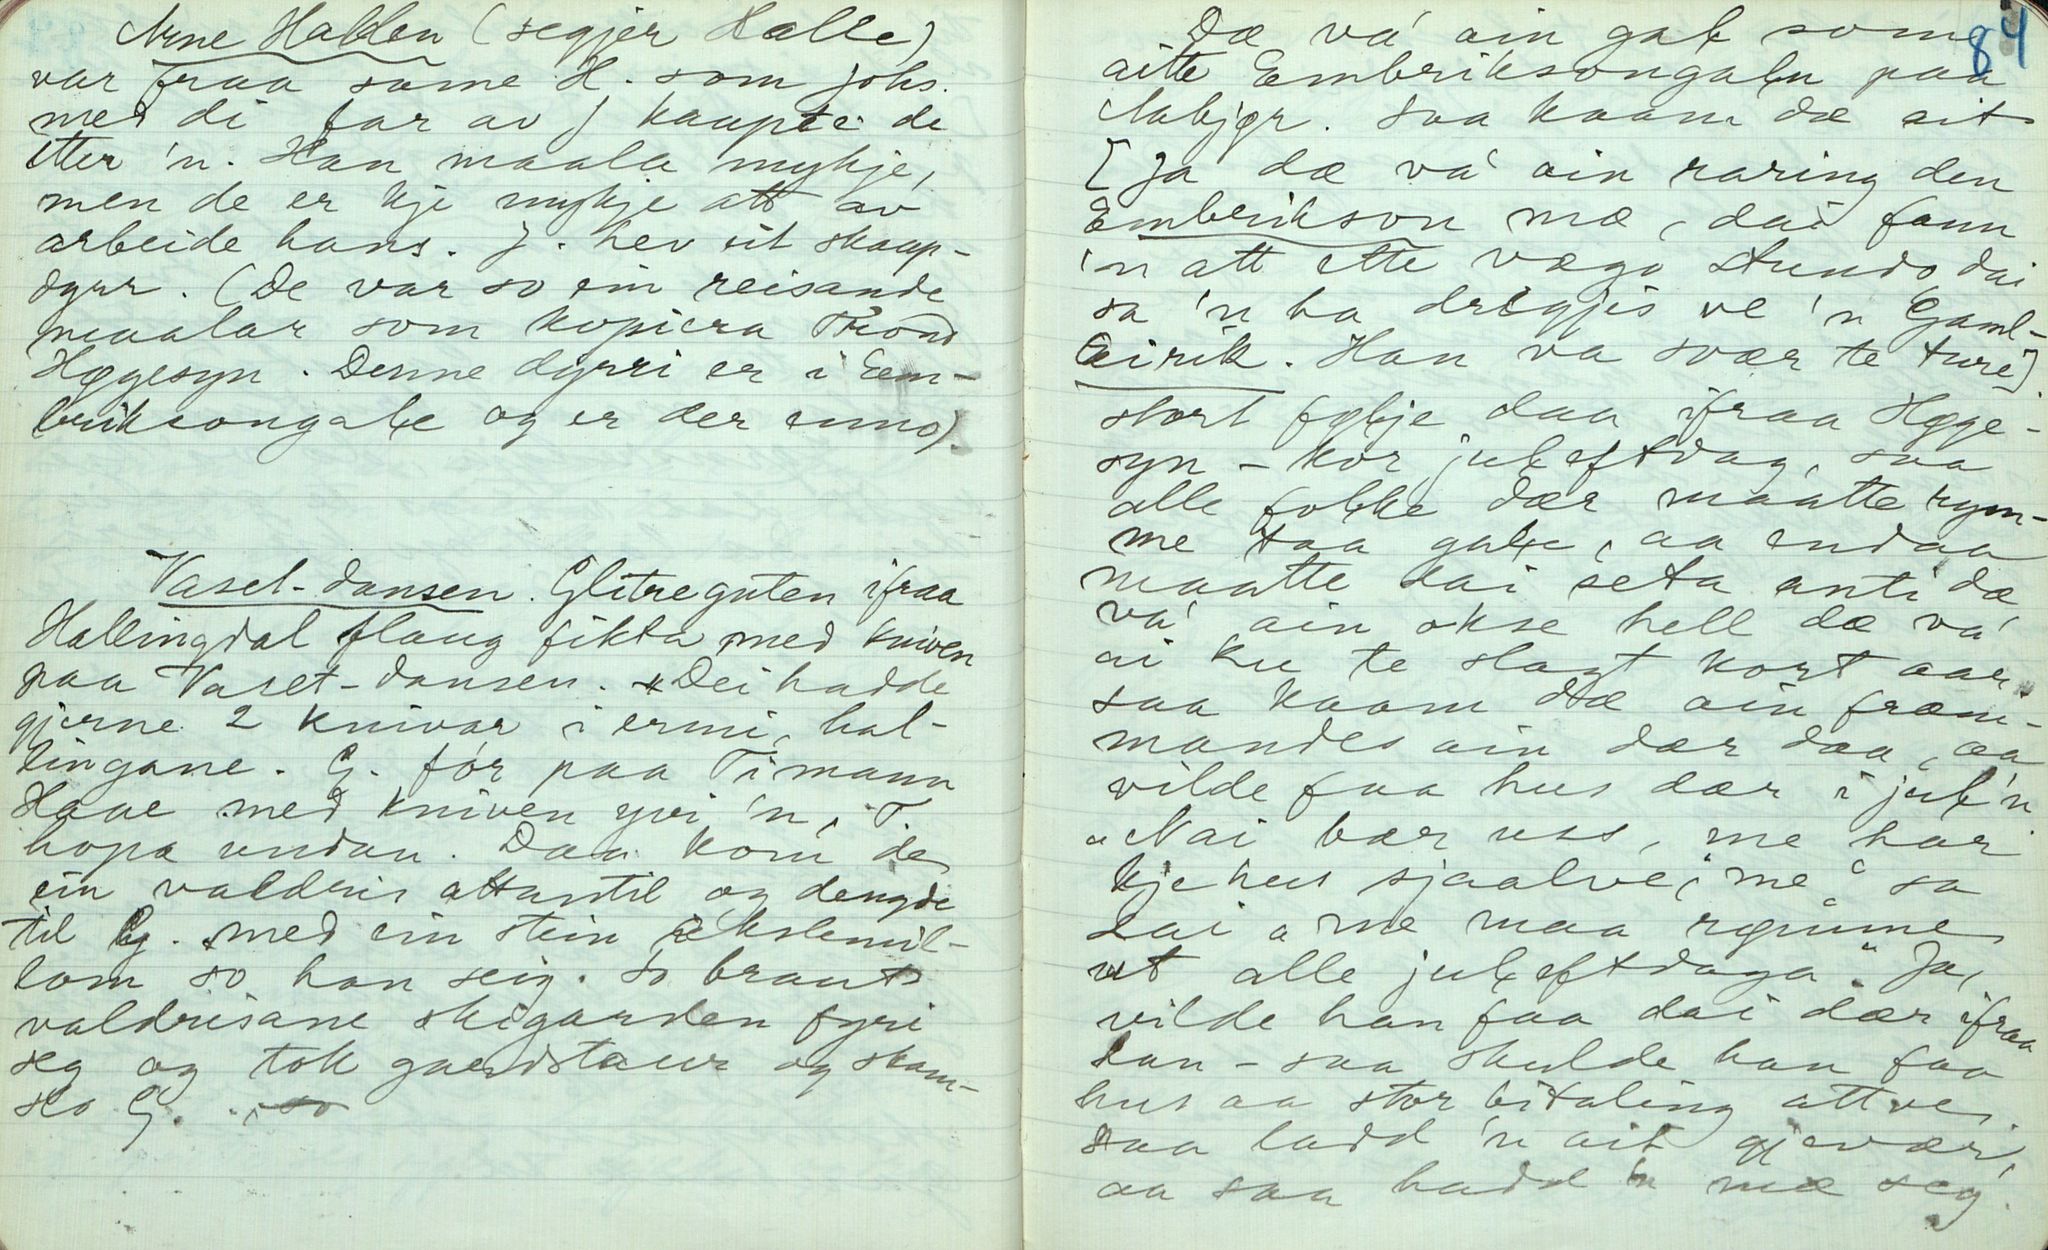 Arne Halden (segjer Hælle)
var fraa same H. som Johs.
med di far av J kaupte de
etter 'n. Han maala mykje,
men de er kje mykje att av
arbeide hans. J. hev eit skaap-
dyrr. (De var so ein reisande
maalar som kopiera Trond
Høgesyn. Denne dyrri er i Em-
briksongale og er der enno).
Vaset-dansen. Glitreguten ifraa
Hallingdal flaug fikta med kniven
paa Vaset-dansen. "Dei hadde
gjerne 2 knivar i ermi, hal-
lingane. G. fór paa Timann
Haae med kniven yvi 'n, T.
hopa undan. Daa kom de
ein valdris attantil og dengde
til G. med ein stein i akslemil-
lom so han seig. So braut
valdrisane skigarden fyri
seg og tok gardstaur og skam-
slo G.
84
Dæ va' ain gal som
aitte Embriksongaln paa
Nabjør. Saa kaam dæ ait
[Ja dæ va' ain raring den
Embrikson mæ, dai fann
'n att ette vægo stundo, dai
sa 'n ha drigjis ve 'n Gaml-
Airik. Han va svær te ture].
stort følje daa ifraa Høge-
syn - kor juleftdag, saa
alle folke dær maatte rym-
me taa gale, aa endaa
maatte dai seta anti dæ
va' ain okse hell dæ va'
ai ku te slagt kort aar.
saa kaam dæ ain fræm-
mandes ain dær daa, aa
vilde faa hus dær i jul'n
"Nai bær uss, me har
kje hus sjaalve, me" sa
dai "me maa rømme
ut alle juleftdaga." Ja,
vilde han faa dai dær ifraa
dan - saa skulde han faa
hus aa stor bitaling attve,
saa ladd 'n ait gjevær,
aa saa hadd 'n mæ seg